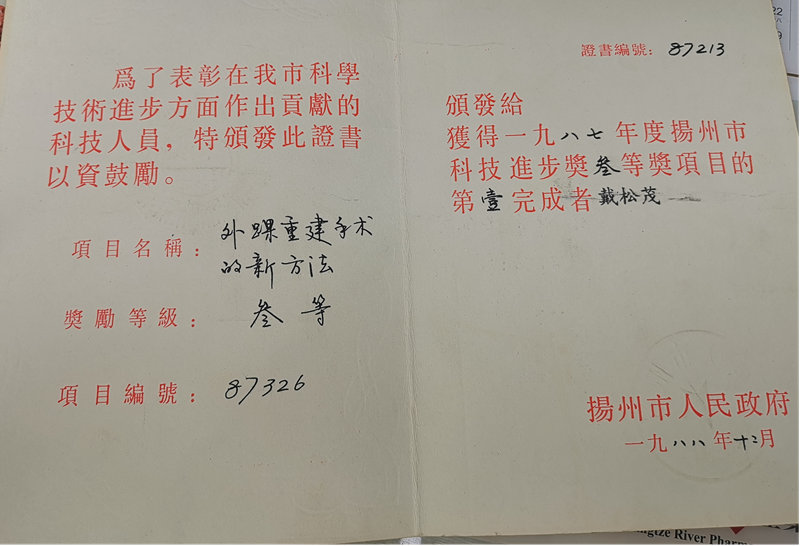 爲了表彰在我市科學
技術進步方面作出貢獻的
科技人員，特頒發此證書
以資鼓勵。
項目名稱：外踝重建手术
的新方法
獎勵等級：叁等
項目編號：87326
證書編號：87213
頒發給
獲得一九八七年度揚州市
科技進步獎叁等獎項目的
第壹完成者戴松茂
揚州市人民政府
一九八八年十二月
22
9
River Pharm